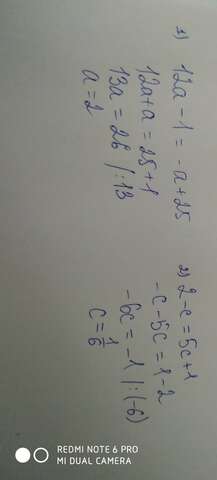 1) 12a - 1 = -a + 25
12a + a = 25 + 1
13a = 26 /:13
a = 2
2) 2 - c = 5c + 1
-c - 5c = 1 - 2
-6c = -1 |:(-6)
c = 1/6
REDMI NOTE 6 PRO
MI DUAL CAMERA